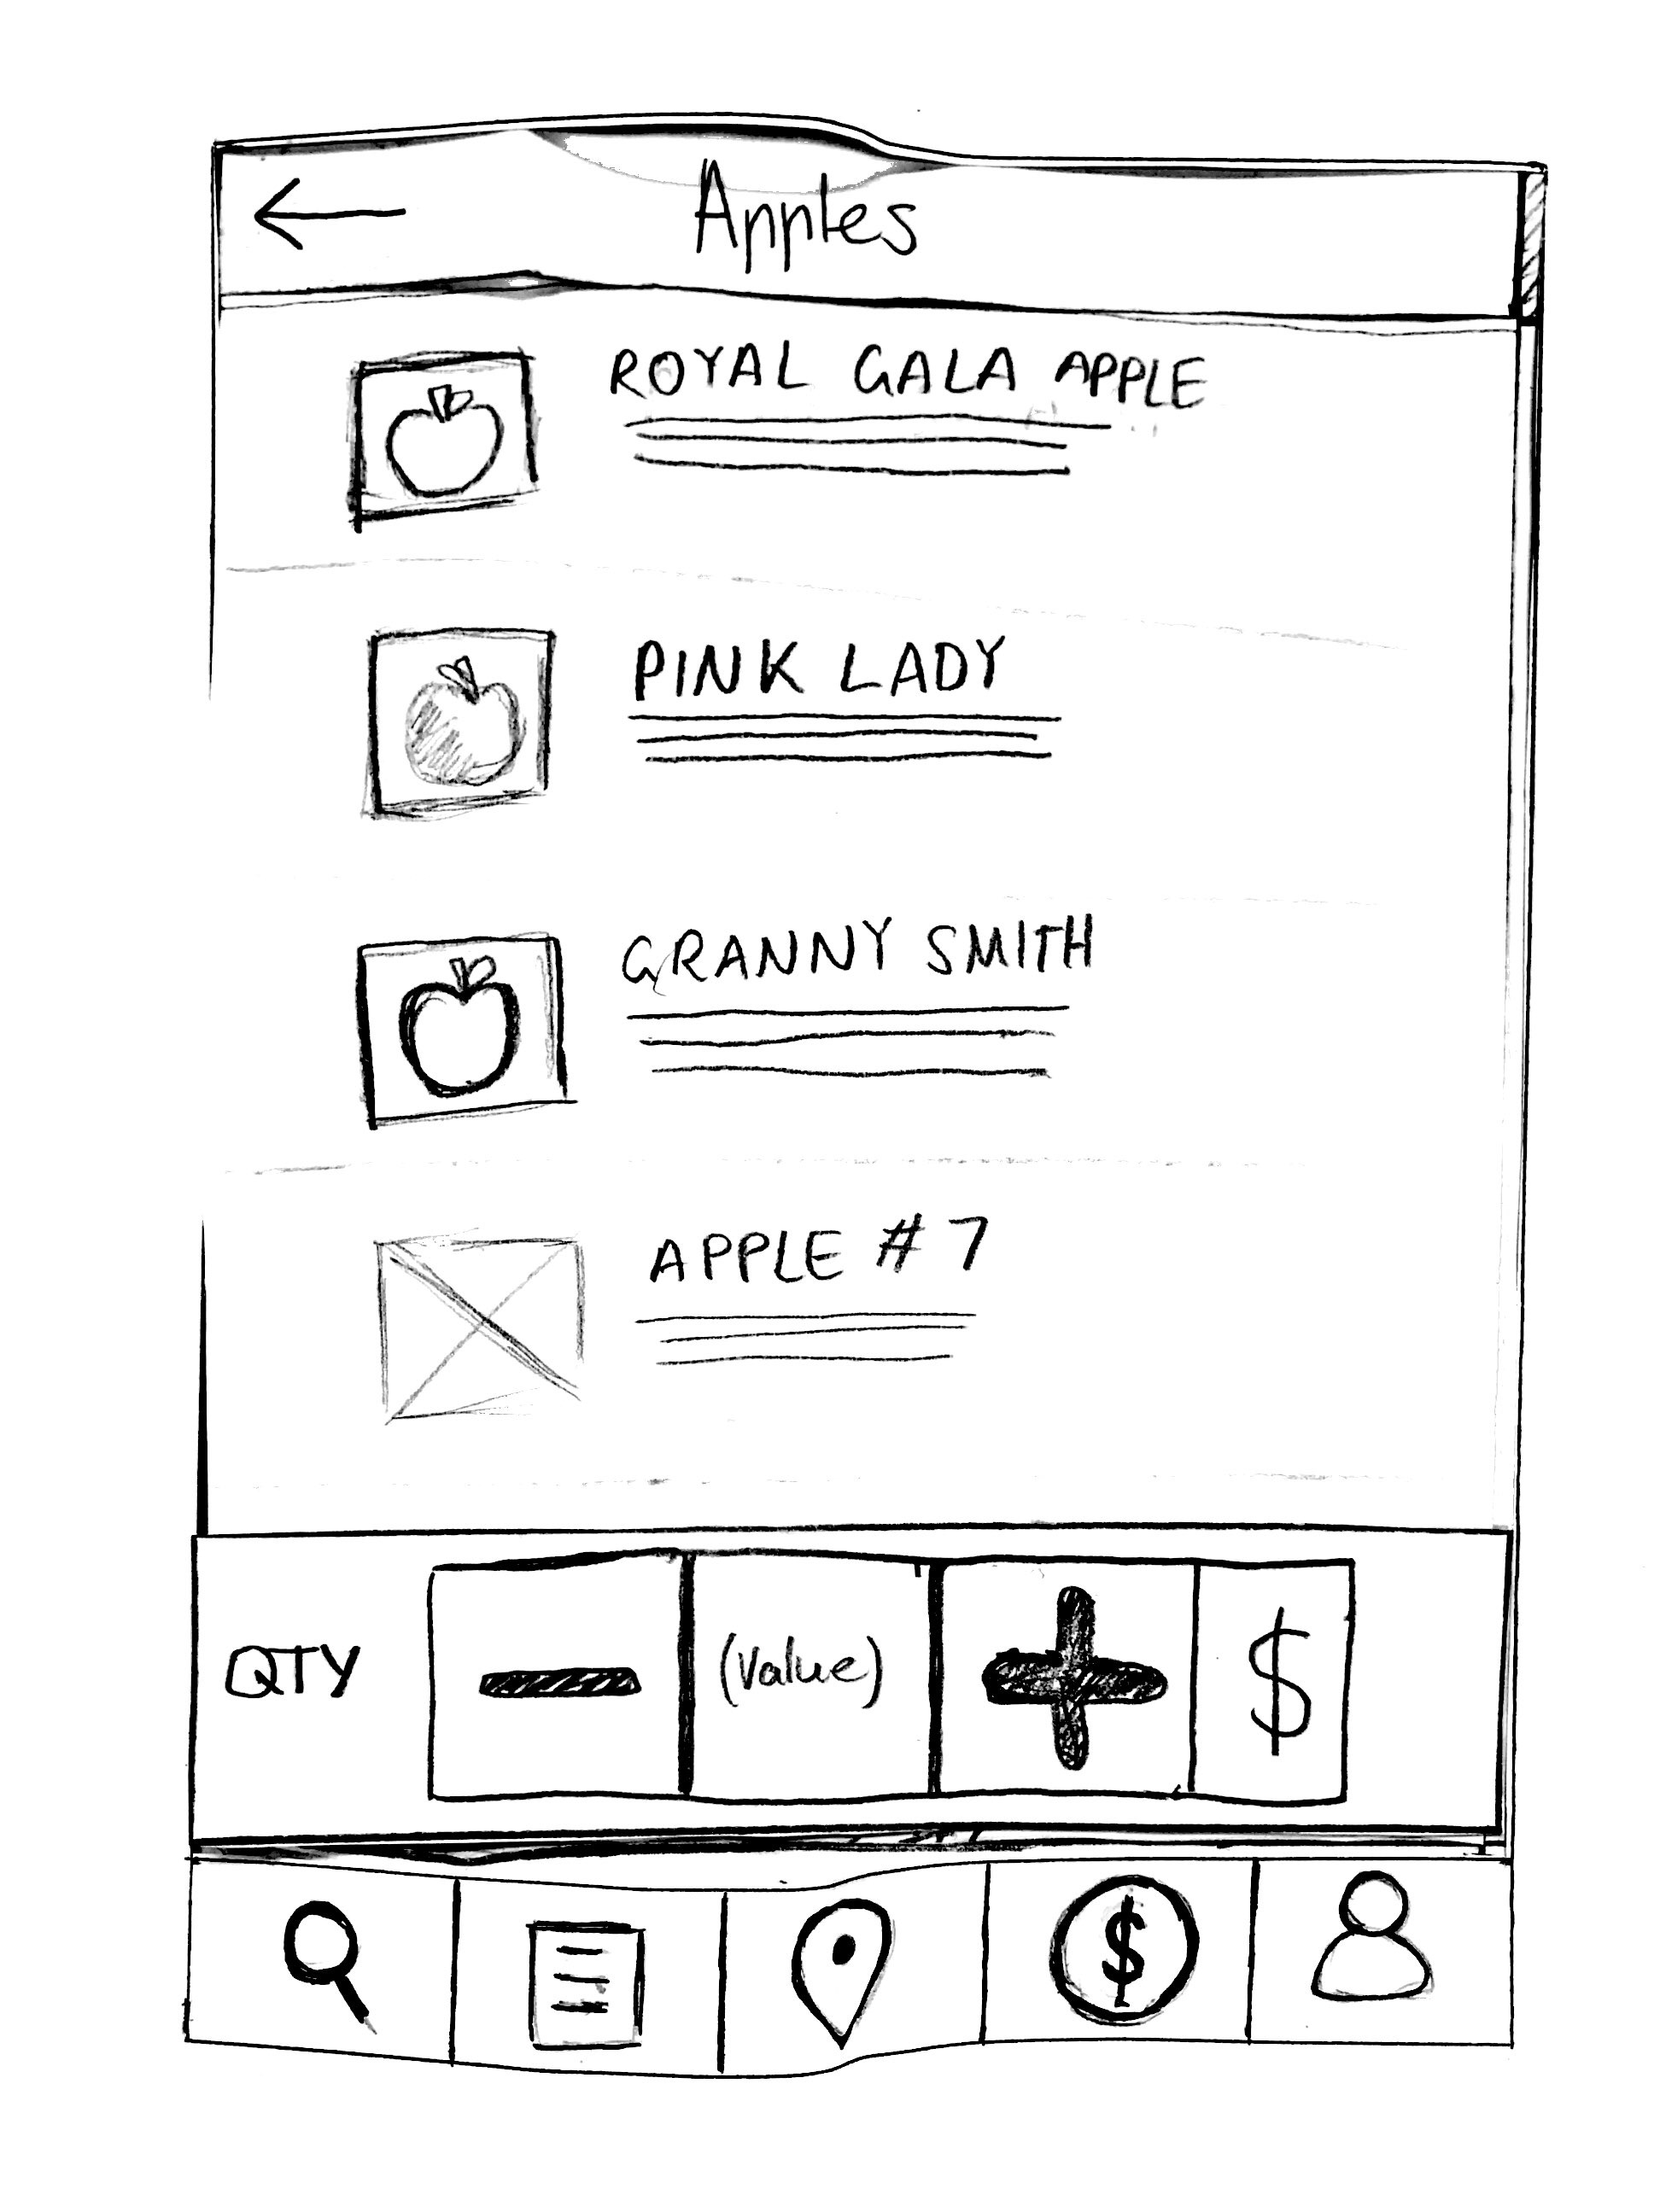 Apples
ROYAL GALA APPLE
PINK LADY
GRANNY SMITH
APPLE # 7
QTY (Value) $
$